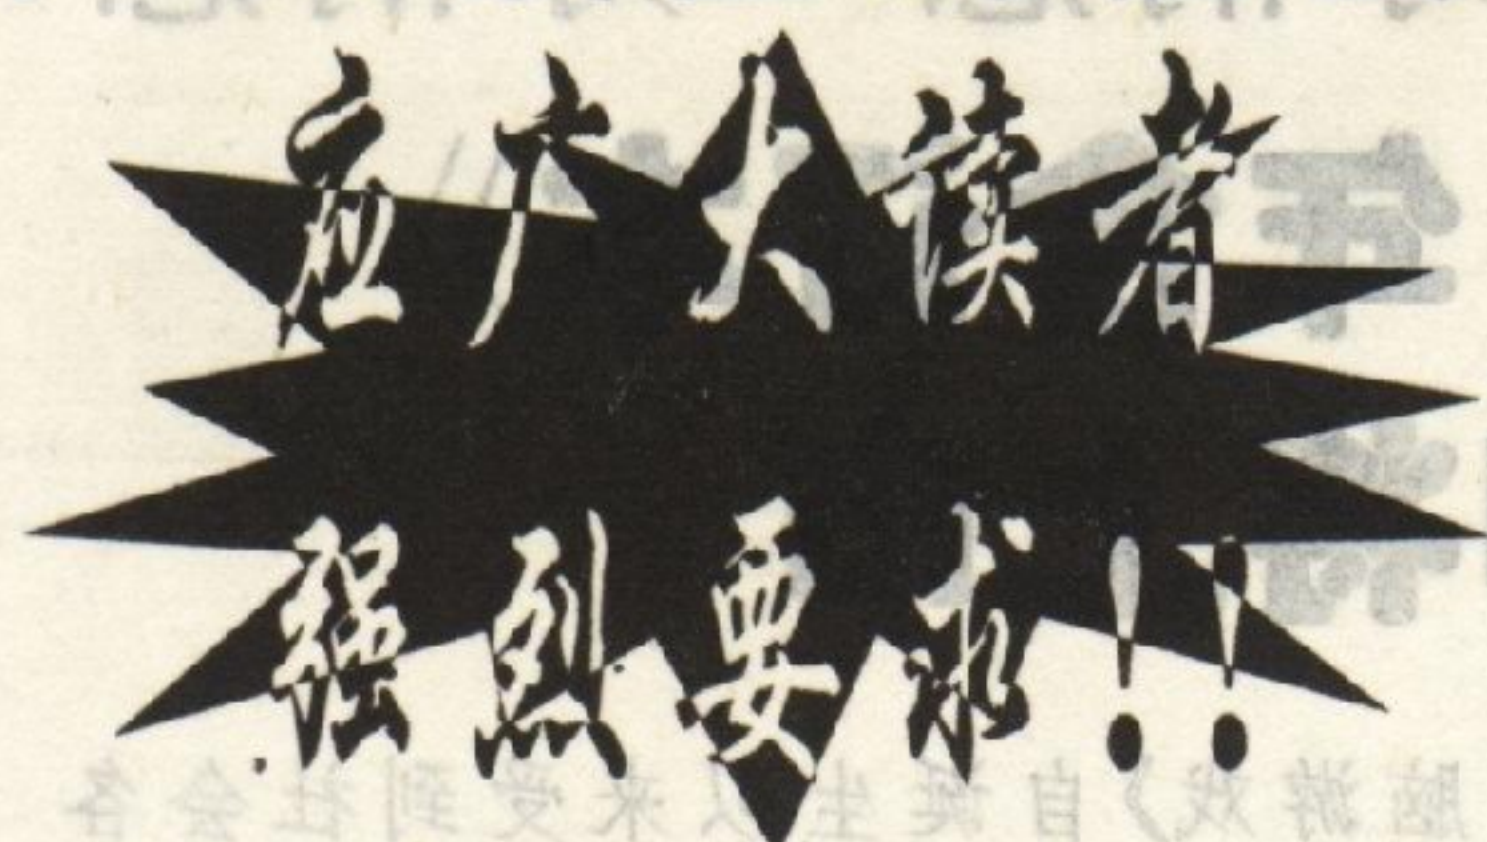 应广大读者
强烈要求！！